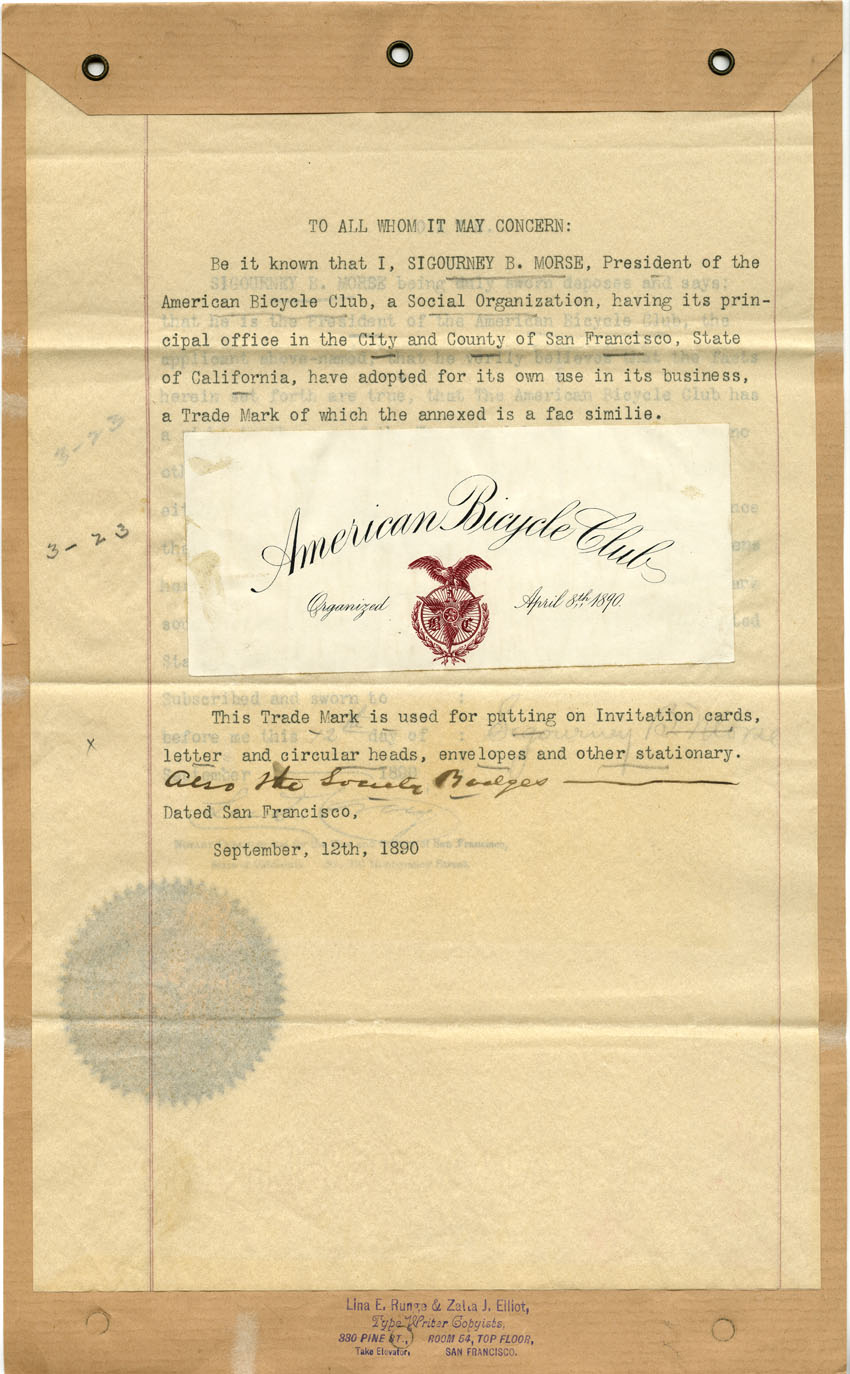 TO ALL WHOM IT MAY CONCERN:
Be it known that I, SIGOURNEY B. MORSE, President of the
American Bicycle Club, a Social Organization, having its prin-
cipal office in the City and County of San Francisco, State
of California, have adopted for its own use in its business,
a Trade Mark of which the annexed is a fac similie.
3-23
3-23
American Bicycle Club
Organized April 8th, 1890.
A
B C
This Trade Mark is used for putting on Invitation cards,
x
letter and circular heads, envelopes and other stationary.
Also the Society Badges
Dated San Francisco,
September, 12th, 1890
Lina E. Runge & Zella J. Elliot,
Type Writer Copyists,
330 PINE ST., ROOM 54, TOP FLOOR,
Take Elevator, SAN FRANCISCO.